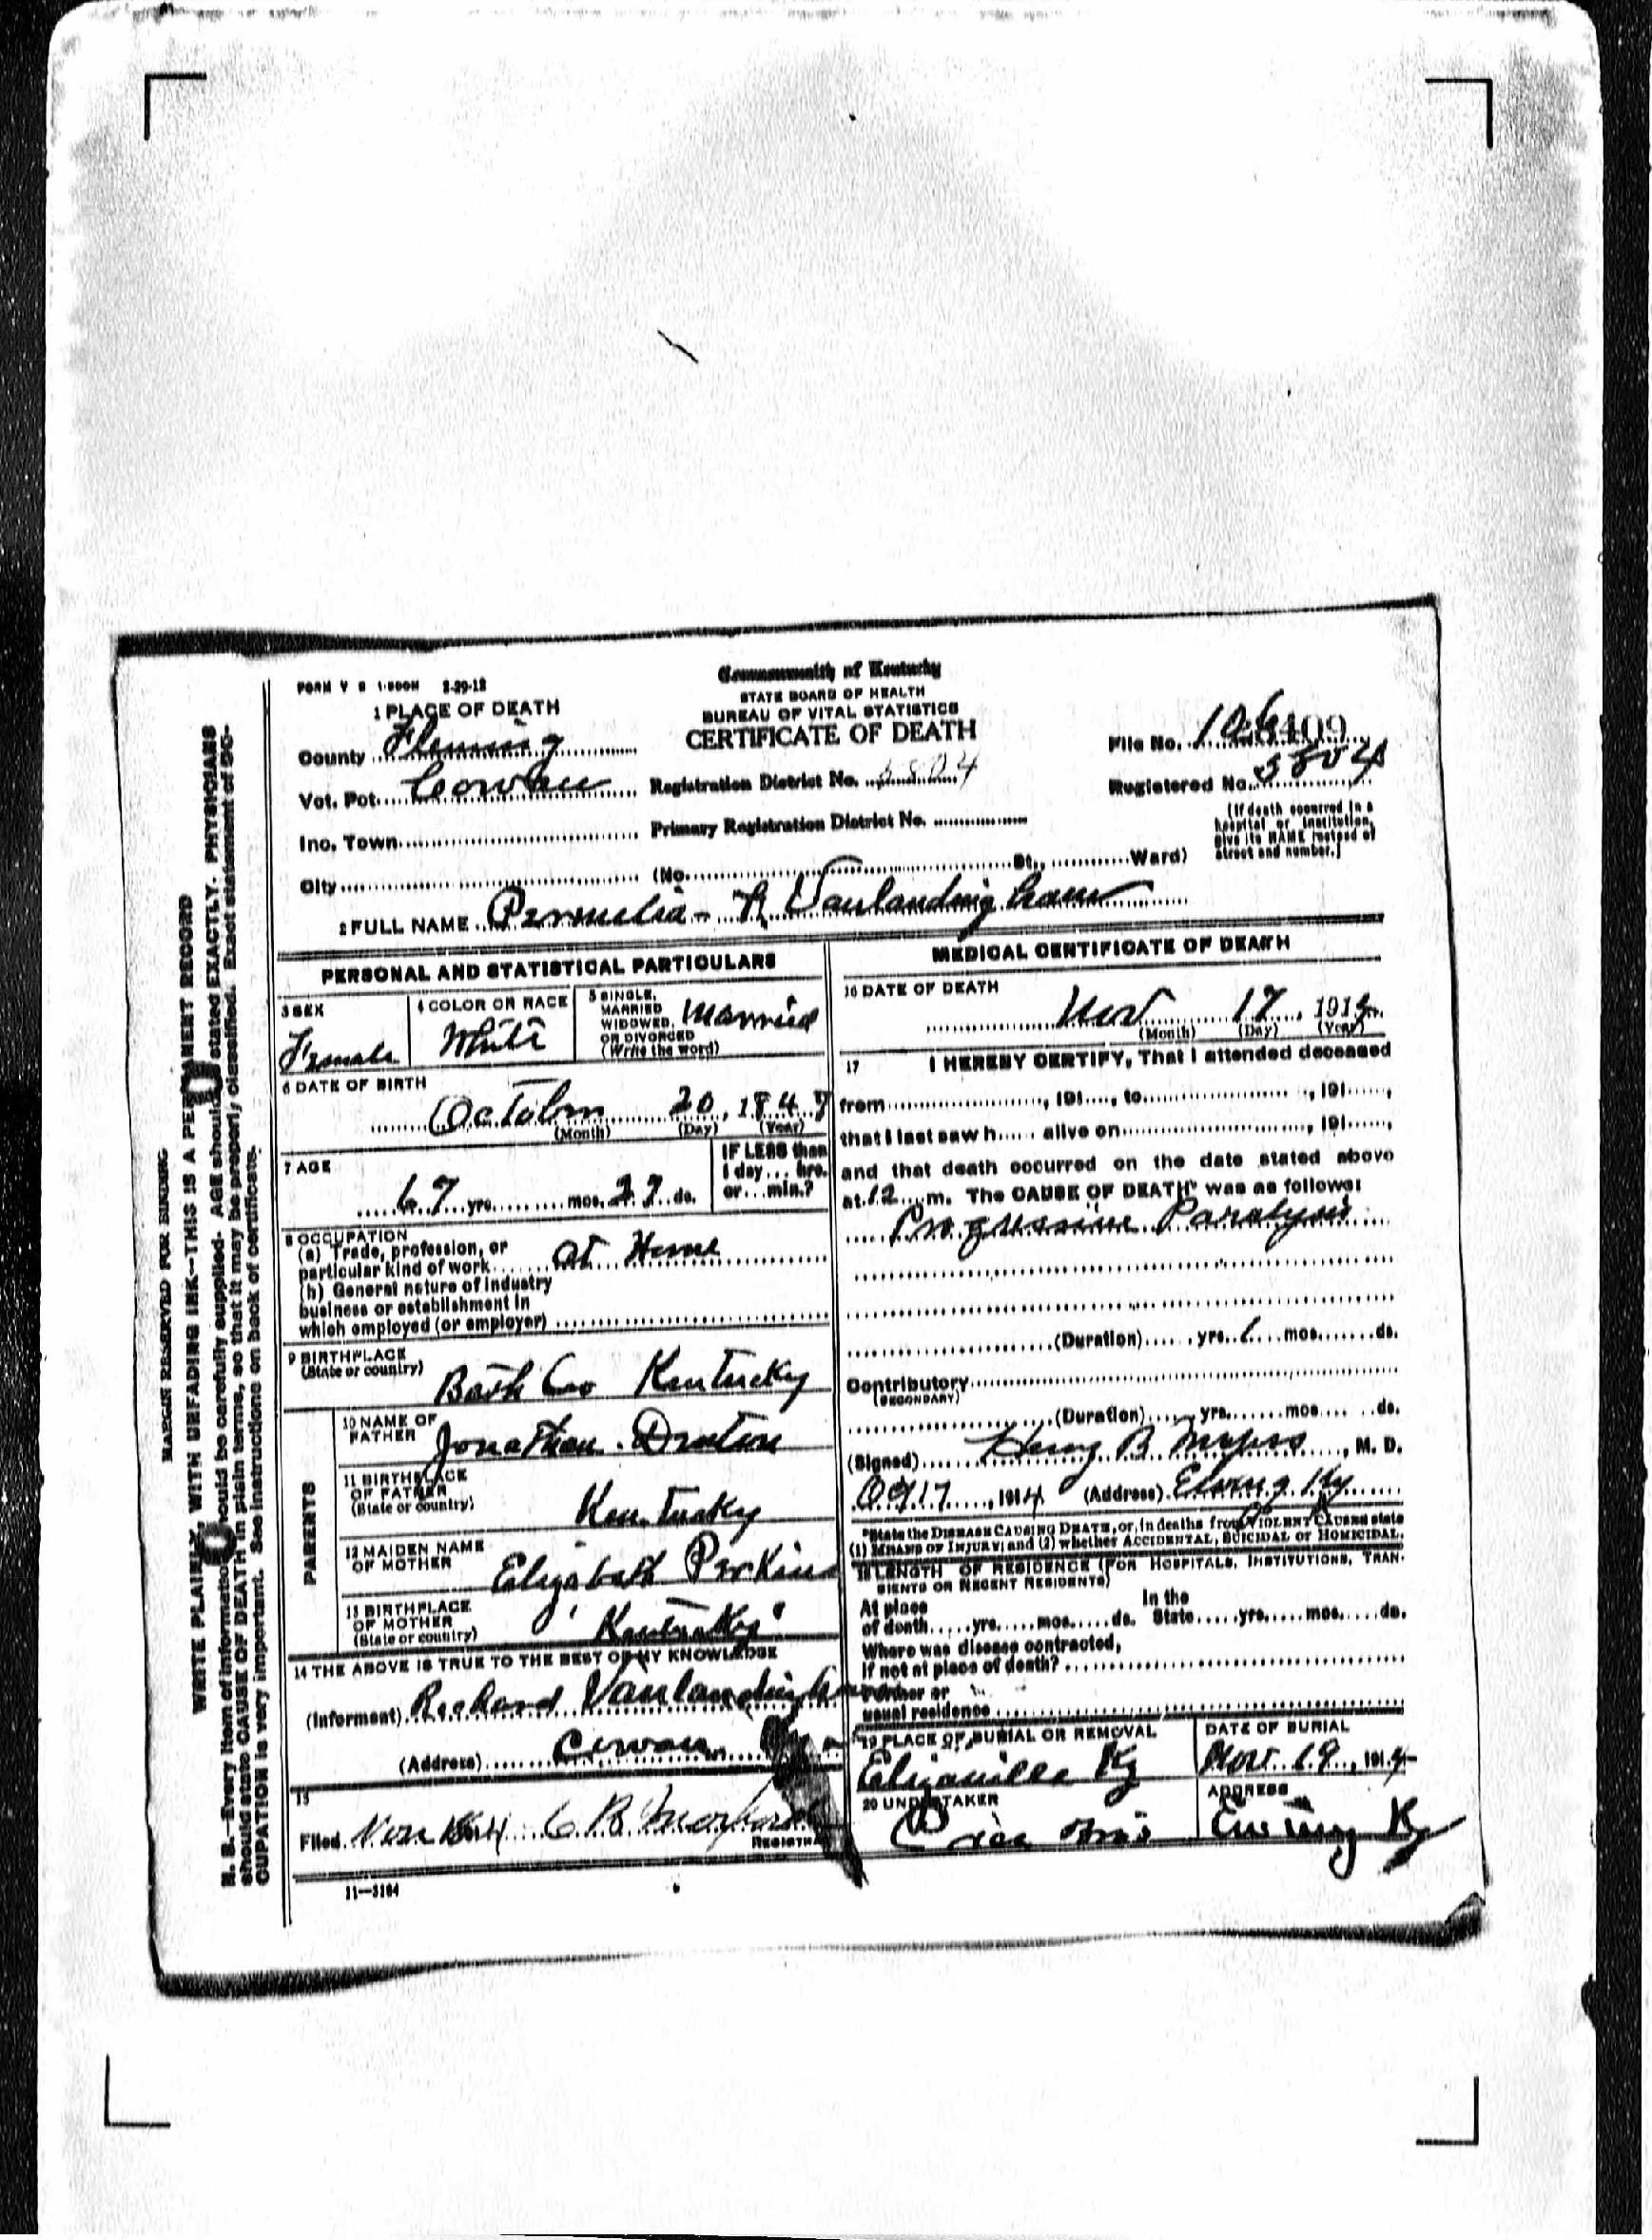 MARGIN RESERVED FOR BINDING
WRITE PLAINLY, WITH UNFADING INK—THIS IS A PERMANENT RECORD
N. B.—Every item of information should be carefully supplied. AGE should stated EXACTLY. PHYSICIANS
should state CAUSE OF DEATH in plain terms, so that it may be properly classified. Exact statement of OC-
CUPATION is very important. See instructions on back of certificate.
FORM V S 2-29-12
Commonwealth of Kentucky
STATE BOARD OF HEALTH
BUREAU OF VITAL STATISTICS
CERTIFICATE OF DEATH
1 PLACE OF DEATH
County Fleming
Vot. Pct. Cowan
Inc. Town
City
Registration District No.
Primary Registration District No.
(No. St., Ward)
File No.
Registered No. 5504
(If death occurred in a
hospital or institution,
give its NAME instead of
street and number.)
2 FULL NAME Permelia - R Vanlandingham
PERSONAL AND STATISTICAL PARTICULARS
3 SEX
Female
4 COLOR OR RACE
White
5 SINGLE,
MARRIED
WIDOWED,
OR DIVORCED
(Write the word)
Married
6 DATE OF BIRTH
October 20, 184
(Month) (Day) (Year)
7 AGE
67 yrs. mos. 27 ds.
IF LESS than
1 day... hrs.
or... min.?
8 OCCUPATION
(a) Trade, profession, or
particular kind of work at Home
(b) General nature of industry
business or establishment in
which employed (or employer)
9 BIRTHPLACE
(State or country)
Bath Co Kentucky
PARENTS
10 NAME OF
FATHER
Jonathan
11 BIRTHPLACE
OF FATHER
(State or country)
Kentucky
12 MAIDEN NAME
OF MOTHER
Elizabeth Perkins
13 BIRTHPLACE
OF MOTHER
(State or country)
Kentucky
14 THE ABOVE IS TRUE TO THE BEST OF MY KNOWLEDGE
(Informant) Richard Vanlandingham
(Address) Cowan
15
Filed Nov 18 C R
REGISTRAR
11—3184
MEDICAL CERTIFICATE OF DEATH
16 DATE OF DEATH
Nov 17, 1914
(Month) (Day) (Year)
17 I HEREBY CERTIFY, That I attended deceased
from , 191 , to , 191 ,
that I last saw h alive on , 191 ,
and that death occurred on the date stated above
at 12 m. The CAUSE OF DEATH* was as follows:
Progressive Paralysis
(Duration) yrs. 1 mos. ds.
Contributory
(SECONDARY)
(Duration) yrs. mos. ds.
(Signed) Henry B. , M. D.
17, 1914 (Address) Ewing Ky
*State the DISEASE CAUSING DEATH, or, in deaths from VIOLENT CAUSES state
(1) MEANS OF INJURY; and (2) whether ACCIDENTAL, SUICIDAL or HOMICIDAL.
18 LENGTH OF RESIDENCE (FOR HOSPITALS, INSTITUTIONS, TRAN-
SIENTS OR RECENT RESIDENTS)
At place
of death yrs. mos. ds.
In the
State yrs. mos. ds.
Where was disease contracted,
if not at place of death?
Former or
usual residence
19 PLACE OF BURIAL OR REMOVAL
Elizaville Ky
DATE OF BURIAL
Nov. 19, 1914
20 UNDERTAKER
Price Bros
ADDRESS
Ewing Ky